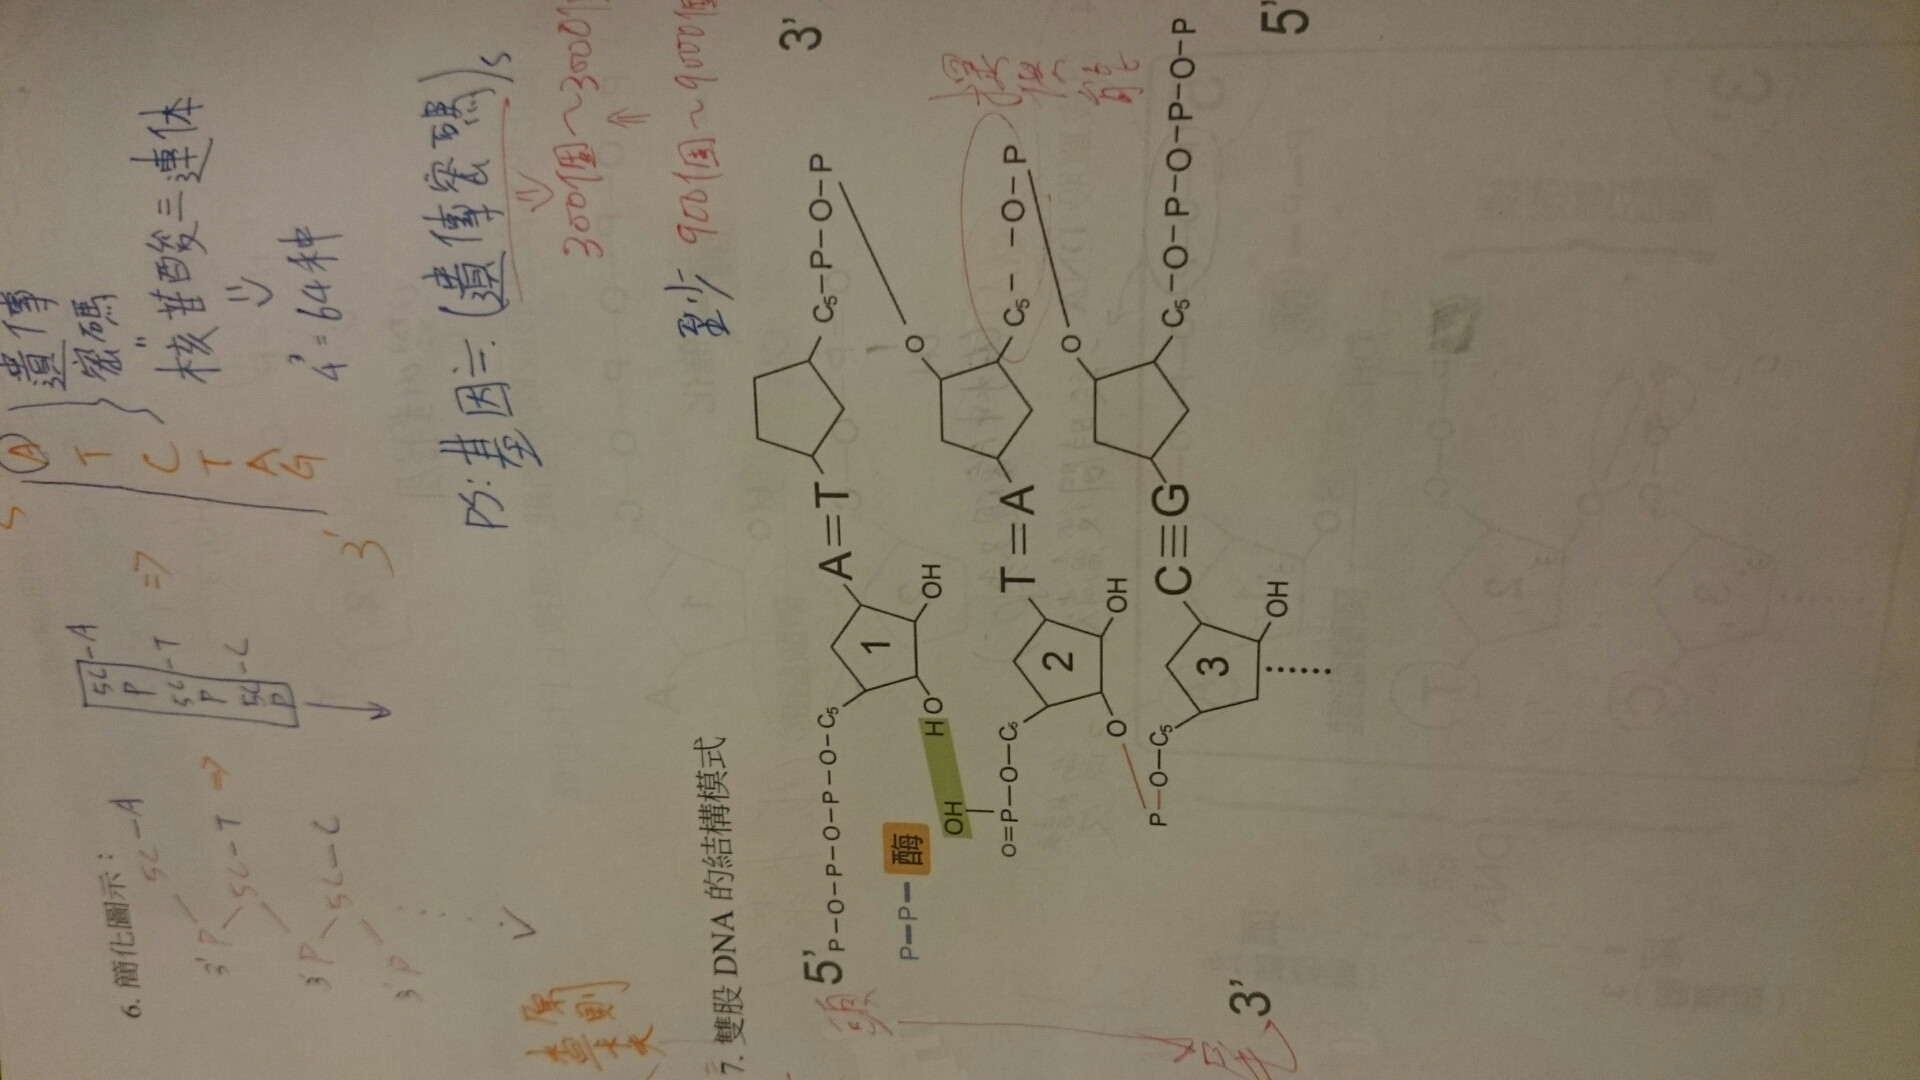 6. 簡化圖示：
5C-A
3'P
5C-T
3'P
5C-C
3'P
⇒
5C-A
P
5C-T
P
5C-C
P
⇒
5'
A
T
C
T
A
G
3'
遺傳
密碼
"
核苷酸三連体
⇓
4³=64種
PS: 基因三(遺傳密碼)s
⇓
300個~3000個
⇑
至少 900個~9000個
原則
7. 雙股 DNA 的結構模式
頭
5' P-O-P-O-P-O-P-O-C5 1 OH A=T C5-P-O-P 3'
P-P-酶
HO
O
OH
O=P-O-C5 2 OH T=A C5- -O-P
O
O
P-O-C5 3 OH C≡G C5-O-P-O-P-O-P 5'
3'
尾